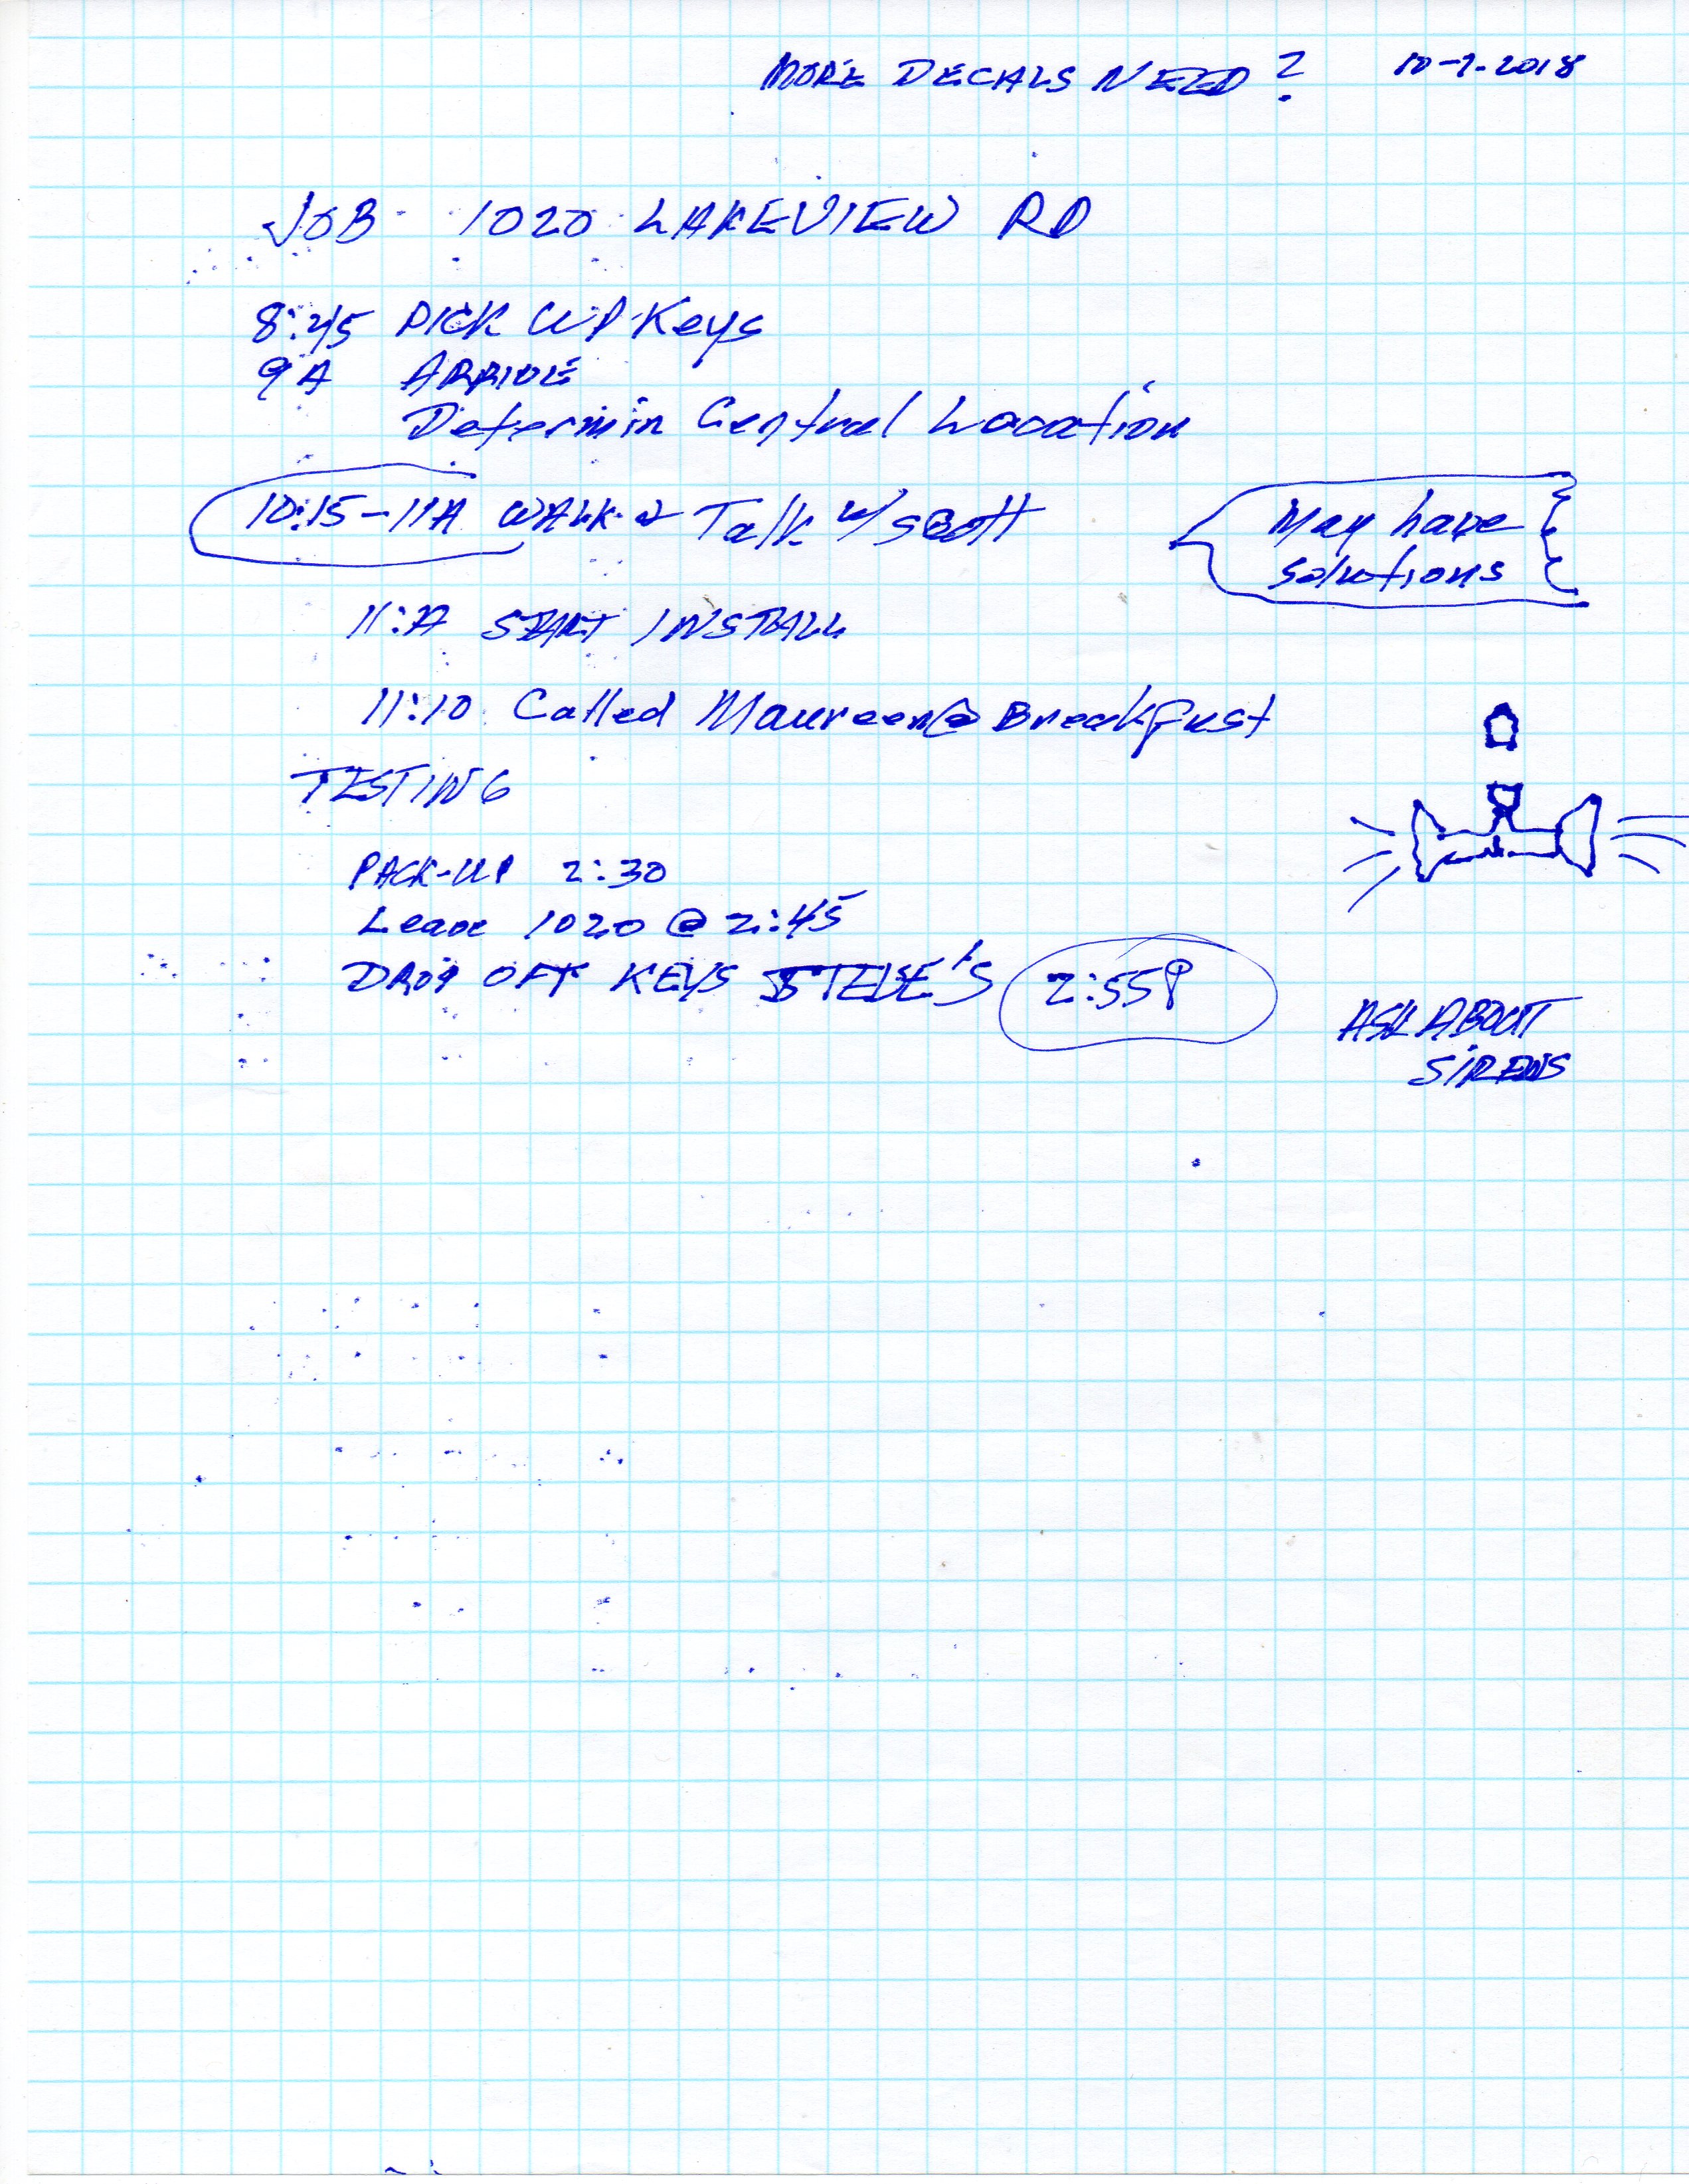 MORE DECALS NEED? 10-7-2018
JOB - 1020 LAKEVIEW RD
8:45 PICK UP Keys
9A ARRIVE
Determin Central Location
10:15-11A WALK & Talk w/ Scott
May have
solutions
11:A START INSTALL
11:10 Called Maureen @ Breakfast
TESTING
PACK-UP 2:30
Leave 1020 @ 2:45
DROP OFF KEYS STEVE'S 2:55P
ASK ABOUT
SIRENS